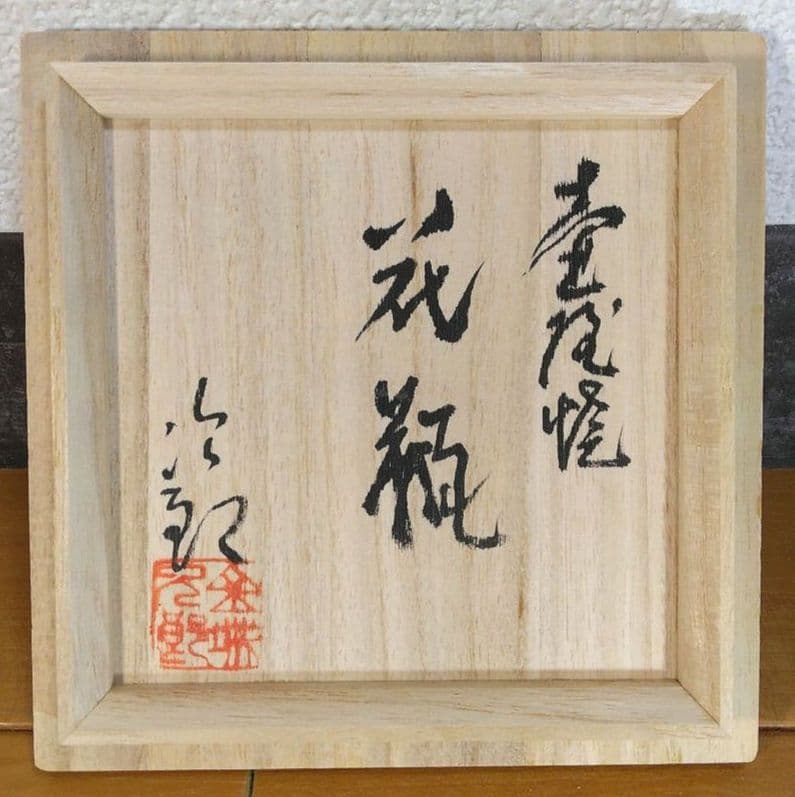 壷屋焼
花瓶
次郎
金城
次郎